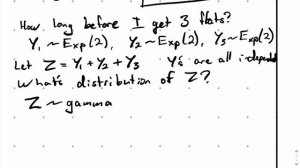 How long before I get 3 flats?
Y₁ ~ Exp(2), Y₂ ~ Exp(2), Y₃ ~ Exp(2)
Let Z = Y₁ + Y₂ + Y₃ Y's are all independ
What's distribution of Z?
Z ~ gamma